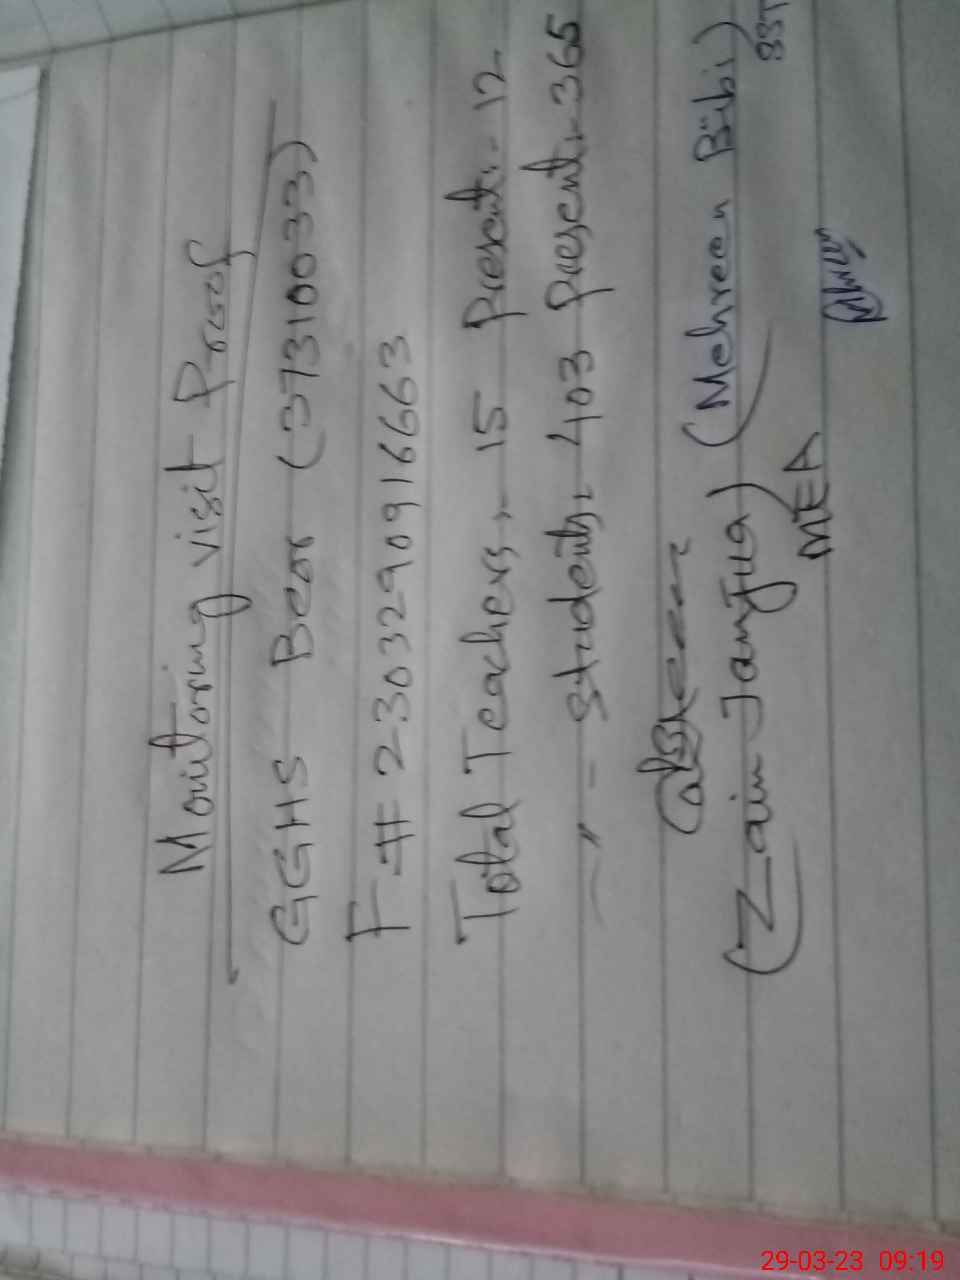 Monitoring visit Proof
GGHS Beor (37310033)
F# 2303290916663
Total Teachers:- 15 Present:- 12
~ " - Students:- 403 Present:- 365
(Zaim Janjua) (Mehreen Bibi)
MEA SST
29-03-23 09:19